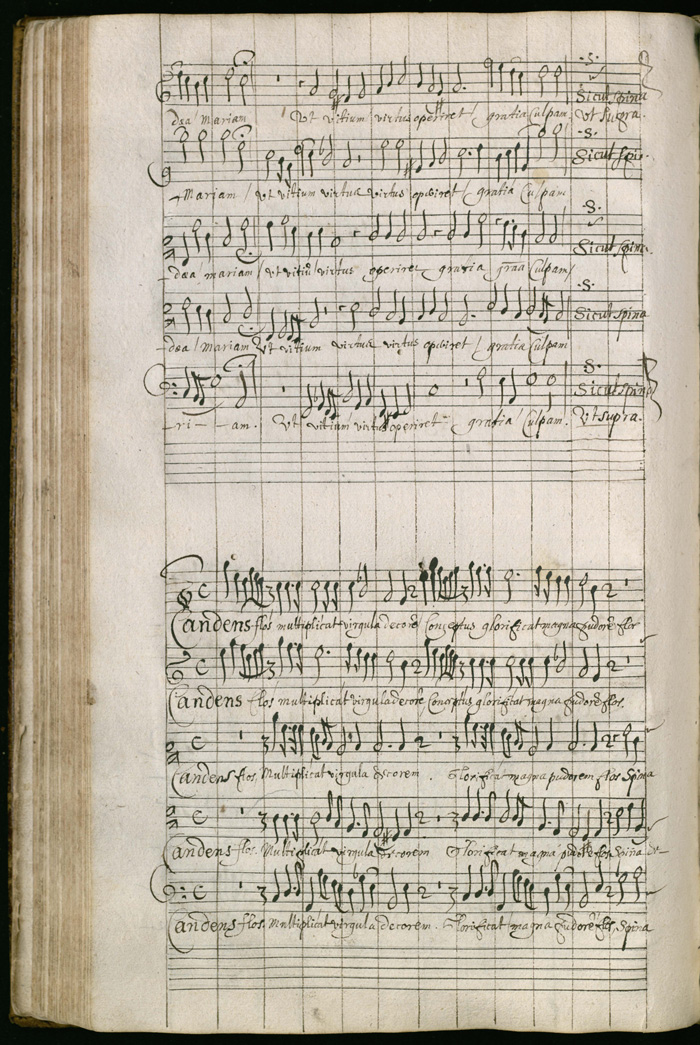 .S.
dæa / Mariam Ut vitium / virtus operiret / gratia Culpam / Sicut spina Ut supra.
.S.
Mariam / ut vitium virtus virtus operiret / gratia Culpam Sicut spin.
.S.
dæa mariam / ut vitiũ / virtus operiret gratia Culpam / Sicut spina.
.S.
dæa / Mariam Ut vitium virtus virtus operiret / gratia Culpam Sicut spina
.S.
ri am. Ut vitium virtus operiret gratia / Culpam. Sicut spina Ut supra.
Candens flos multiplicat virgula decorẽ Conceptus glorificat magna pudorẽ flos
Candens flos multiplicat virgula decorẽ Conceptus glorificat magna pudorẽ flos.
Candens flos, Multiplicat virgula decorem . Glorificat magna pudorem flos Spina
Candens flos. Multiplicat virgula decorem Glorificat magna pudorẽ flos, Spina
Candens flos. Multiplicat virgula decorem. Glorificat magna pudorẽ flos, Spina